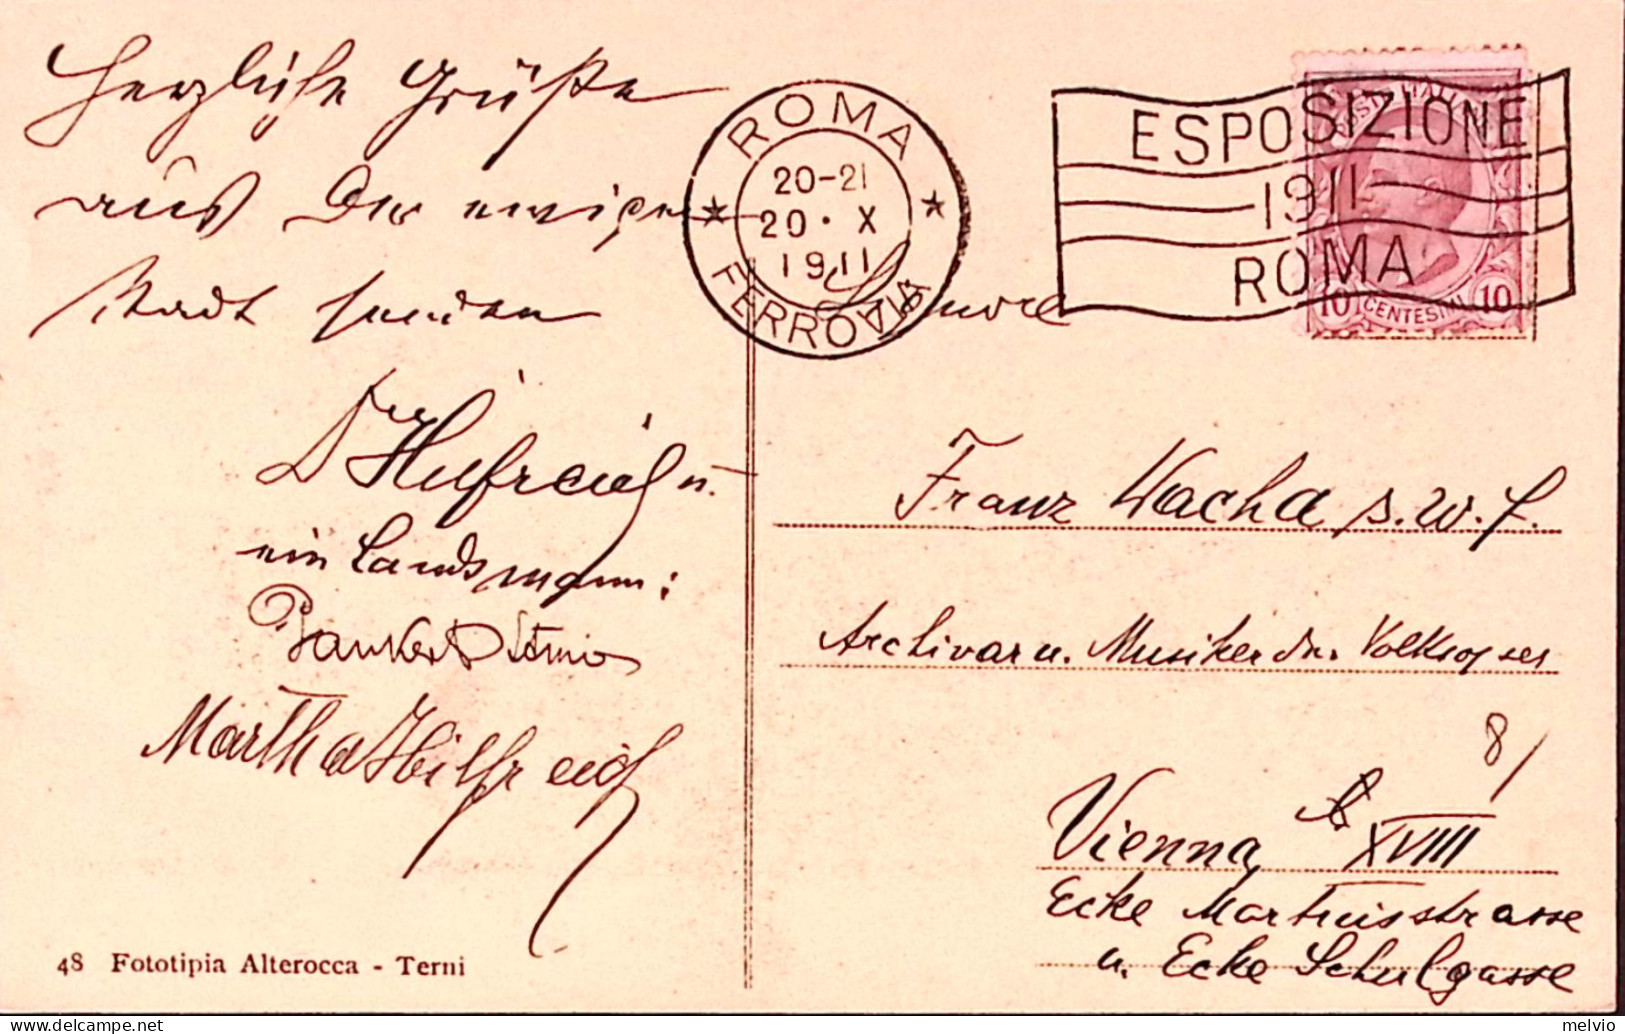 Herzliche Grüße
aus der ewigen
Stadt senden
Dr Hilfreich u.
ein Landsmann:
Martha Hilfreich
48 Fototipia Alterocca - Terni
ROMA
20-21
20 · X
1911
FERROVIA
ESPOSIZIONE
1911
ROMA
10 CENTESIMI 10
Franz Wacha s.w.f.
Archivar u. Musiker der
8/
Vienna, XVIII
Ecke Martinsstrasse
u. Ecke Schulgasse
melvio